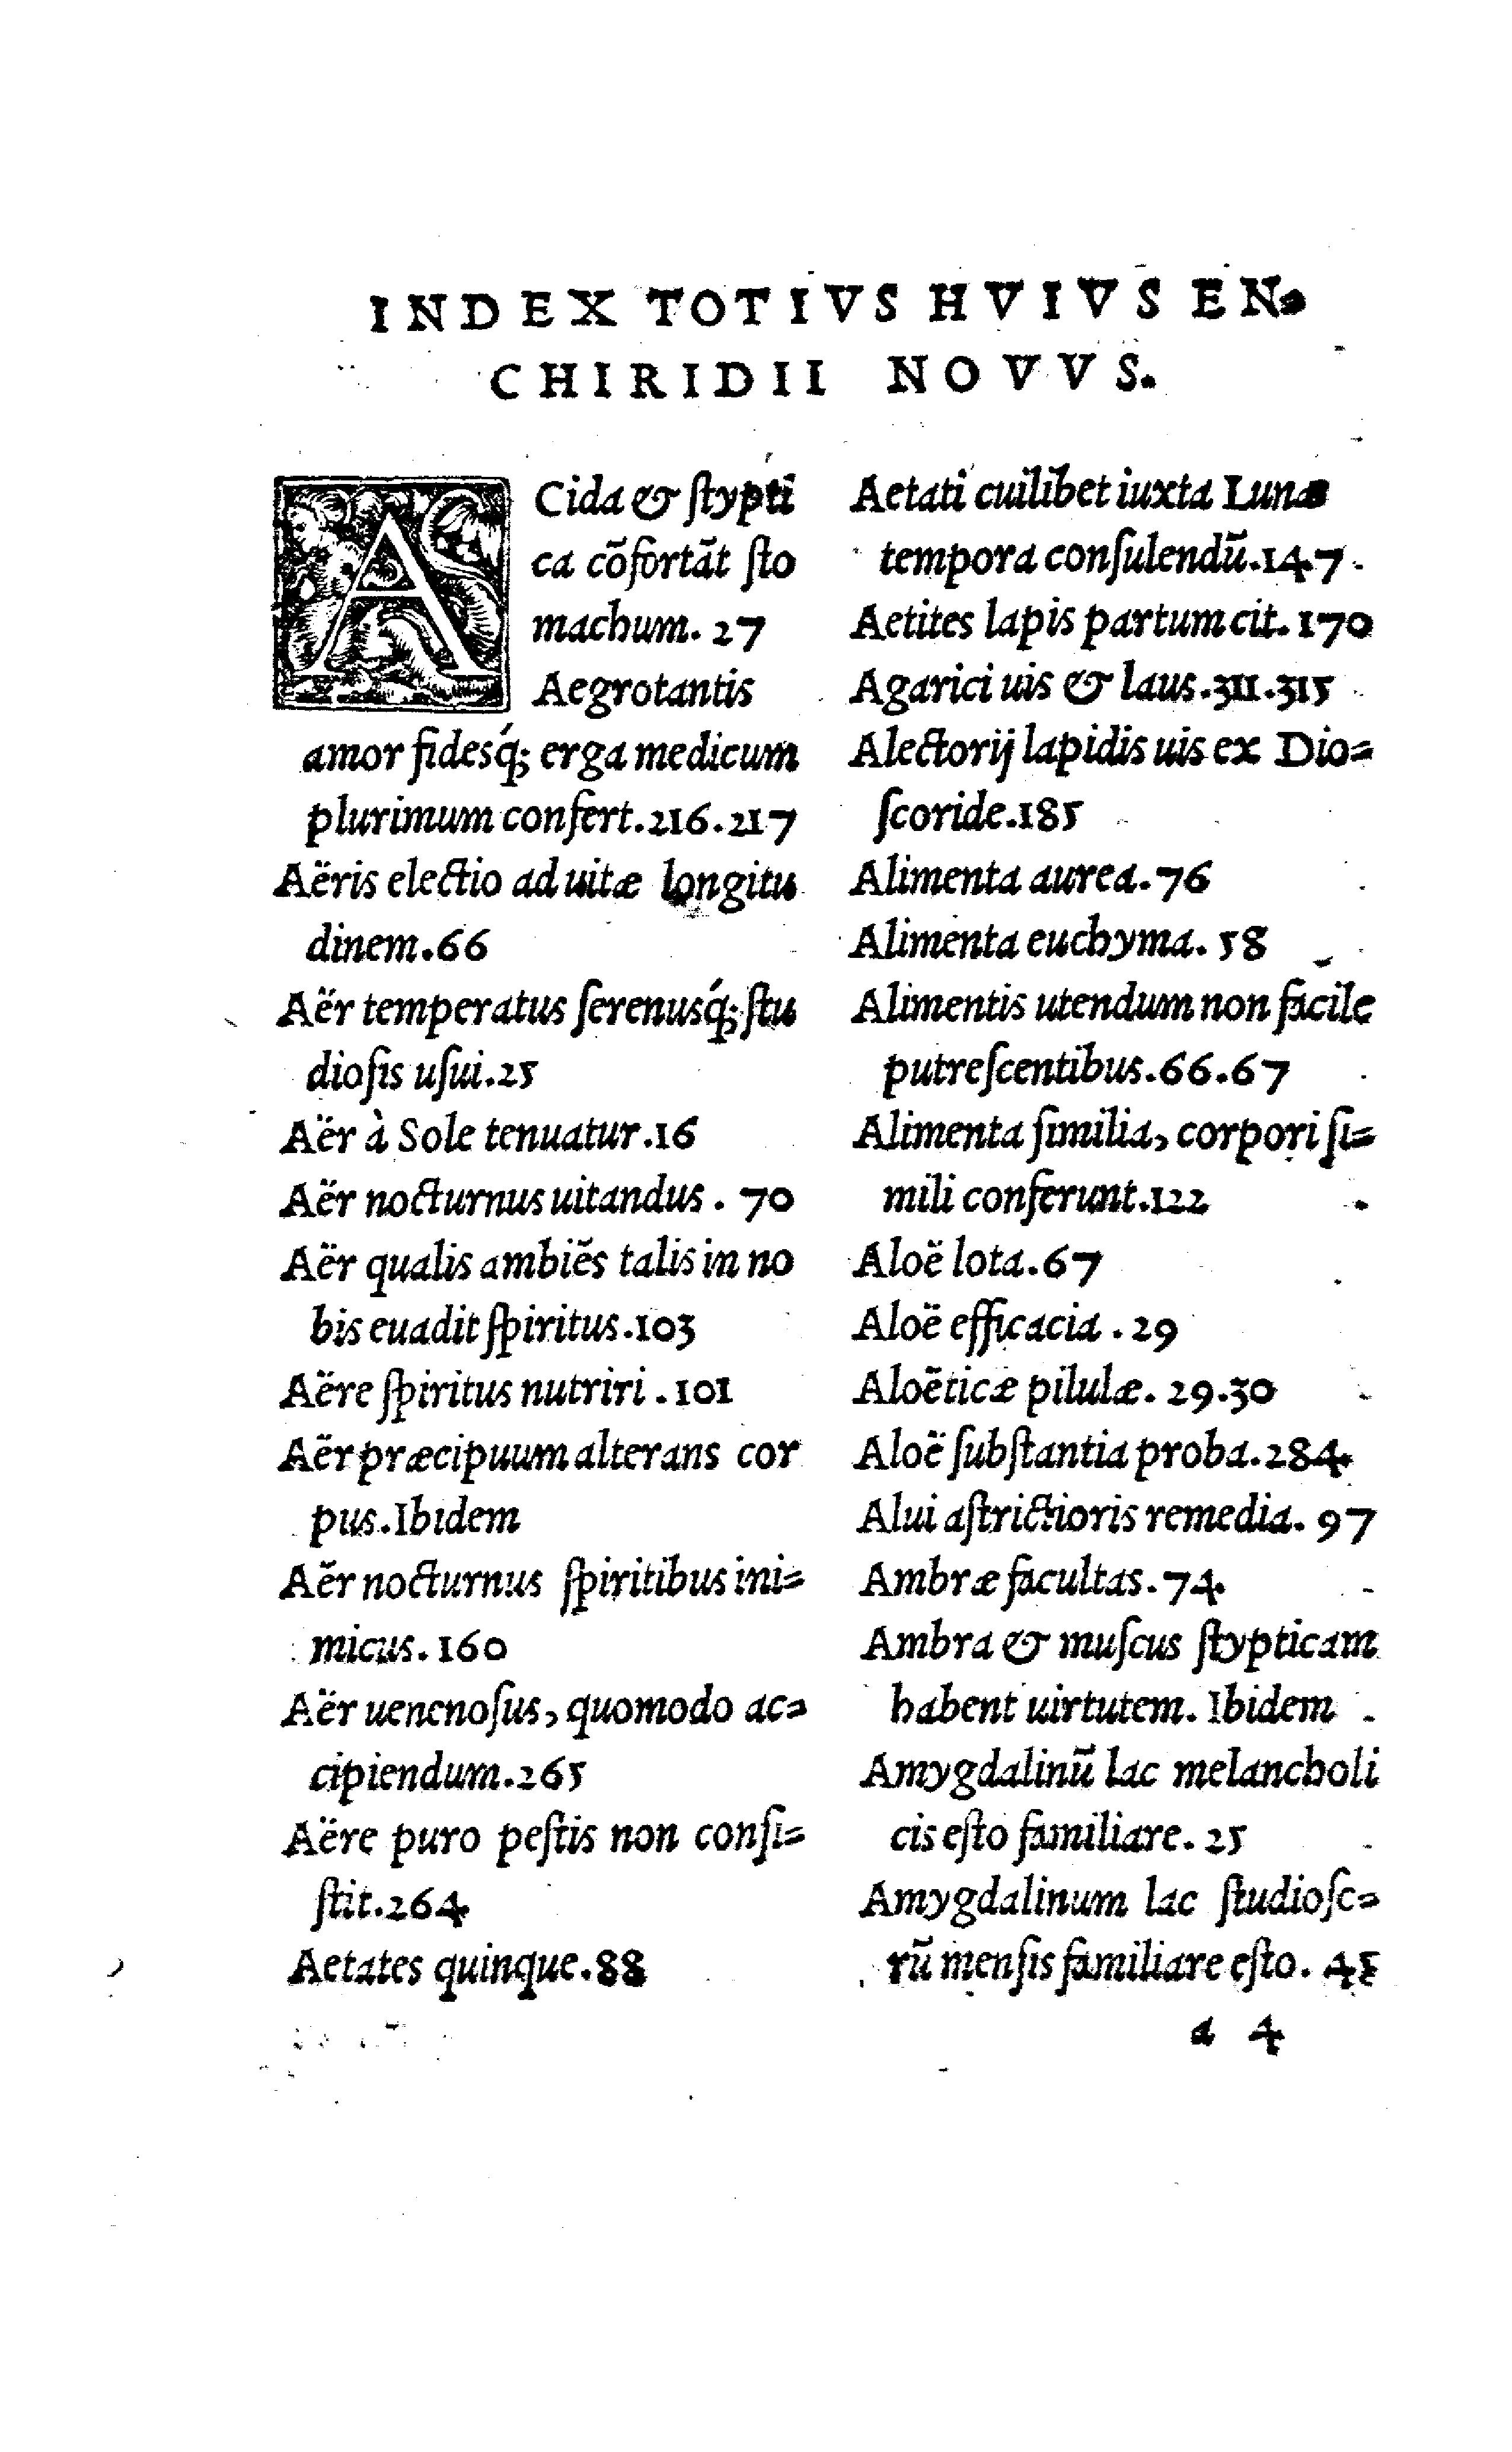 INDEX TOTIVS HVIVS EN-
CHIRIDII NOVVS.
ACida & ſtypti
ca cōfortāt ſto
machum. 27
Aegrotantis
amor fidesq́; erga medicum
plurimum confert.216.217
Aëris electio ad uitæ longitu
dinem.66
Aër temperatus ſerenusq́; ſtu
dioſis uſui.25
Aër à Sole tenuatur.16
Aër nocturnus uitandus. 70
Aër qualis ambiēs talis in no
bis euadit ſpiritus.103
Aëre ſpiritus nutriri.101
Aër præcipuum alterans cor
pus.Ibidem
Aër nocturnus ſpiritibus ini-
micus.160
Aër uenenoſus, quomodo ac-
cipiendum.265
Aëre puro peſtis non conſi-
ſtit.264
Aetates quinque.88
Aetati cuilibet iuxta Lunæ
tempora conſulendū.147
Aetites lapis partum cit.170
Agarici uis & laus.311.315
Alectorij lapidis uis ex Dio-
ſcoride.185
Alimenta aurea.76
Alimenta euchyma. 58
Alimentis utendum non facile
putreſcentibus.66.67
Alimenta ſimilia, corpori ſi-
mili conferunt.122
Aloë lota.67
Aloë efficacia.29
Aloëticæ pilulæ. 29.30
Aloë ſubſtantia proba.284
Alui aſtrictioris remedia. 97
Ambræ facultas.74
Ambra & muſcus ſtypticam
habent uirtutem. Ibidem
Amygdalinū lac melancholi
cis eſto familiare. 25
Amygdalinum lac ſtudioſo-
rū menſis familiare eſto. 45
a 4